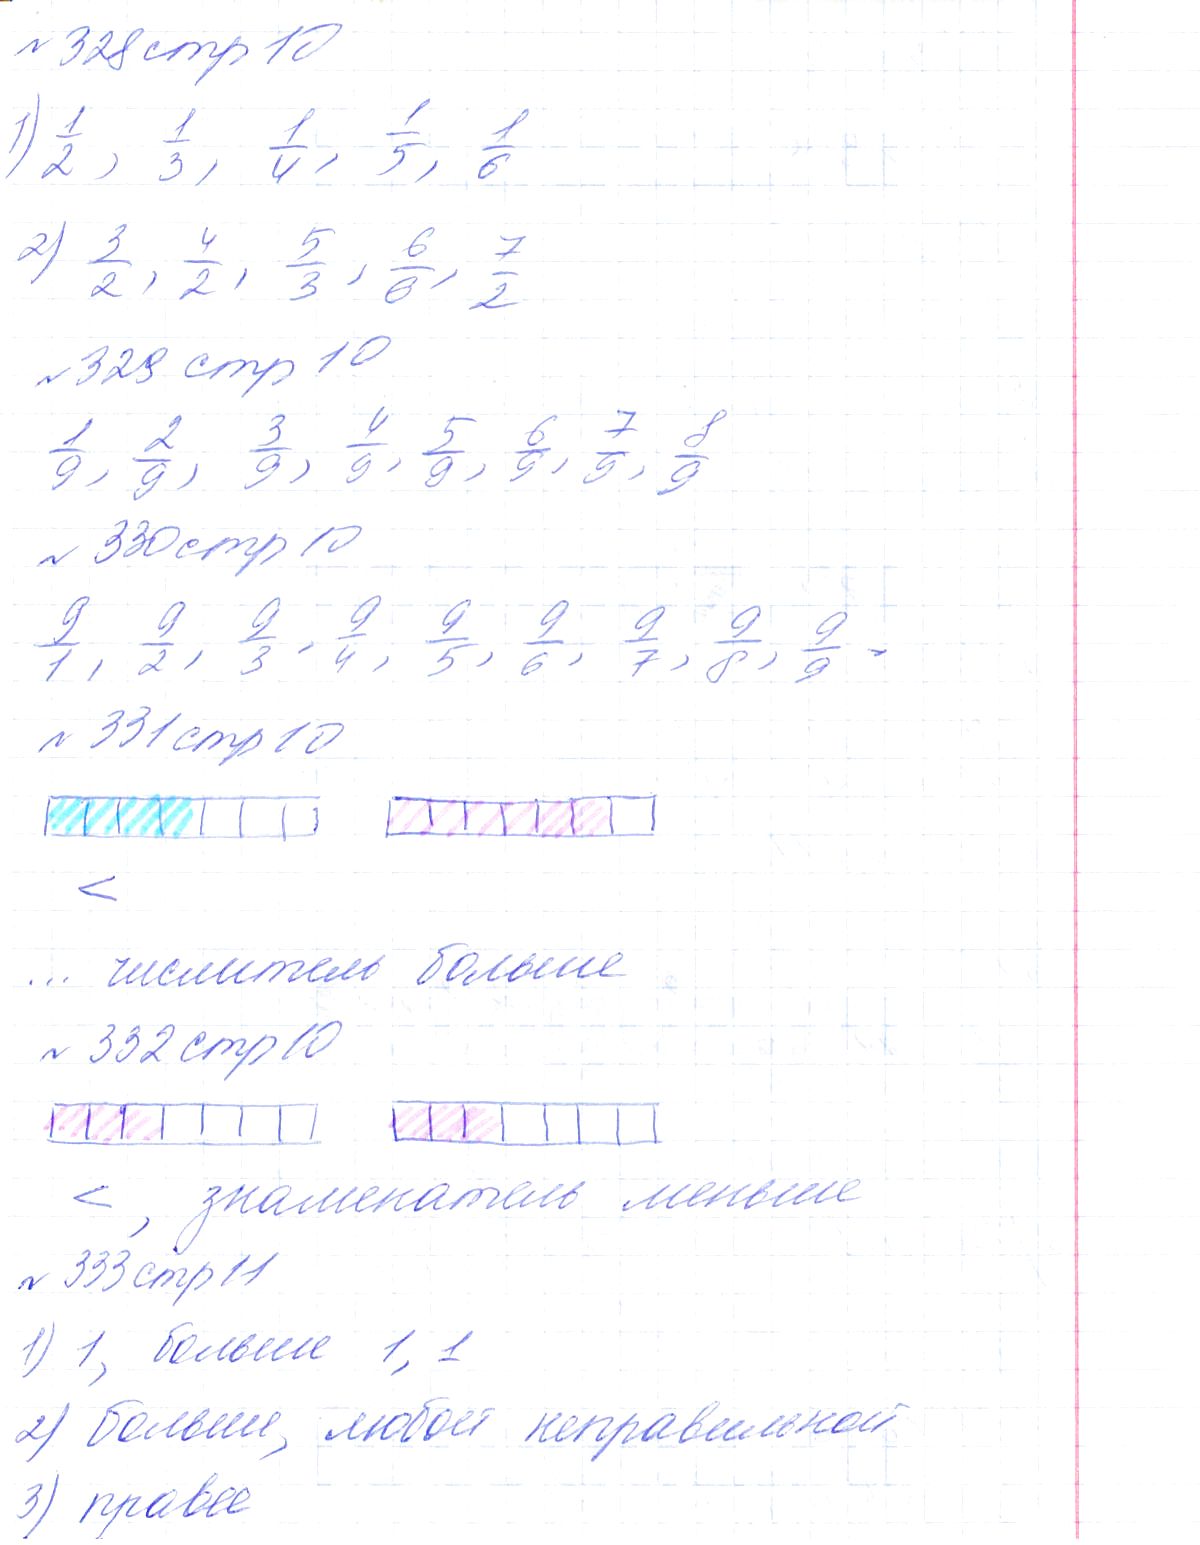 №328 стр 10
1) 1/2, 1/3, 1/4, 1/5, 1/6
2) 3/2, 4/2, 5/3, 6/6, 7/2
№329 стр 10
1/9, 2/9, 3/9, 4/9, 5/9, 6/9, 7/9, 8/9
№330 стр 10
9/1, 9/2, 9/3, 9/4, 9/5, 9/6, 9/7, 9/8, 9/9.
№331 стр 10
<
... числитель больше
№332 стр 10
<, знаменатель меньше
№333 стр 11
1) 1, больше 1, 1
2) больше, любой неправильной
3) правее